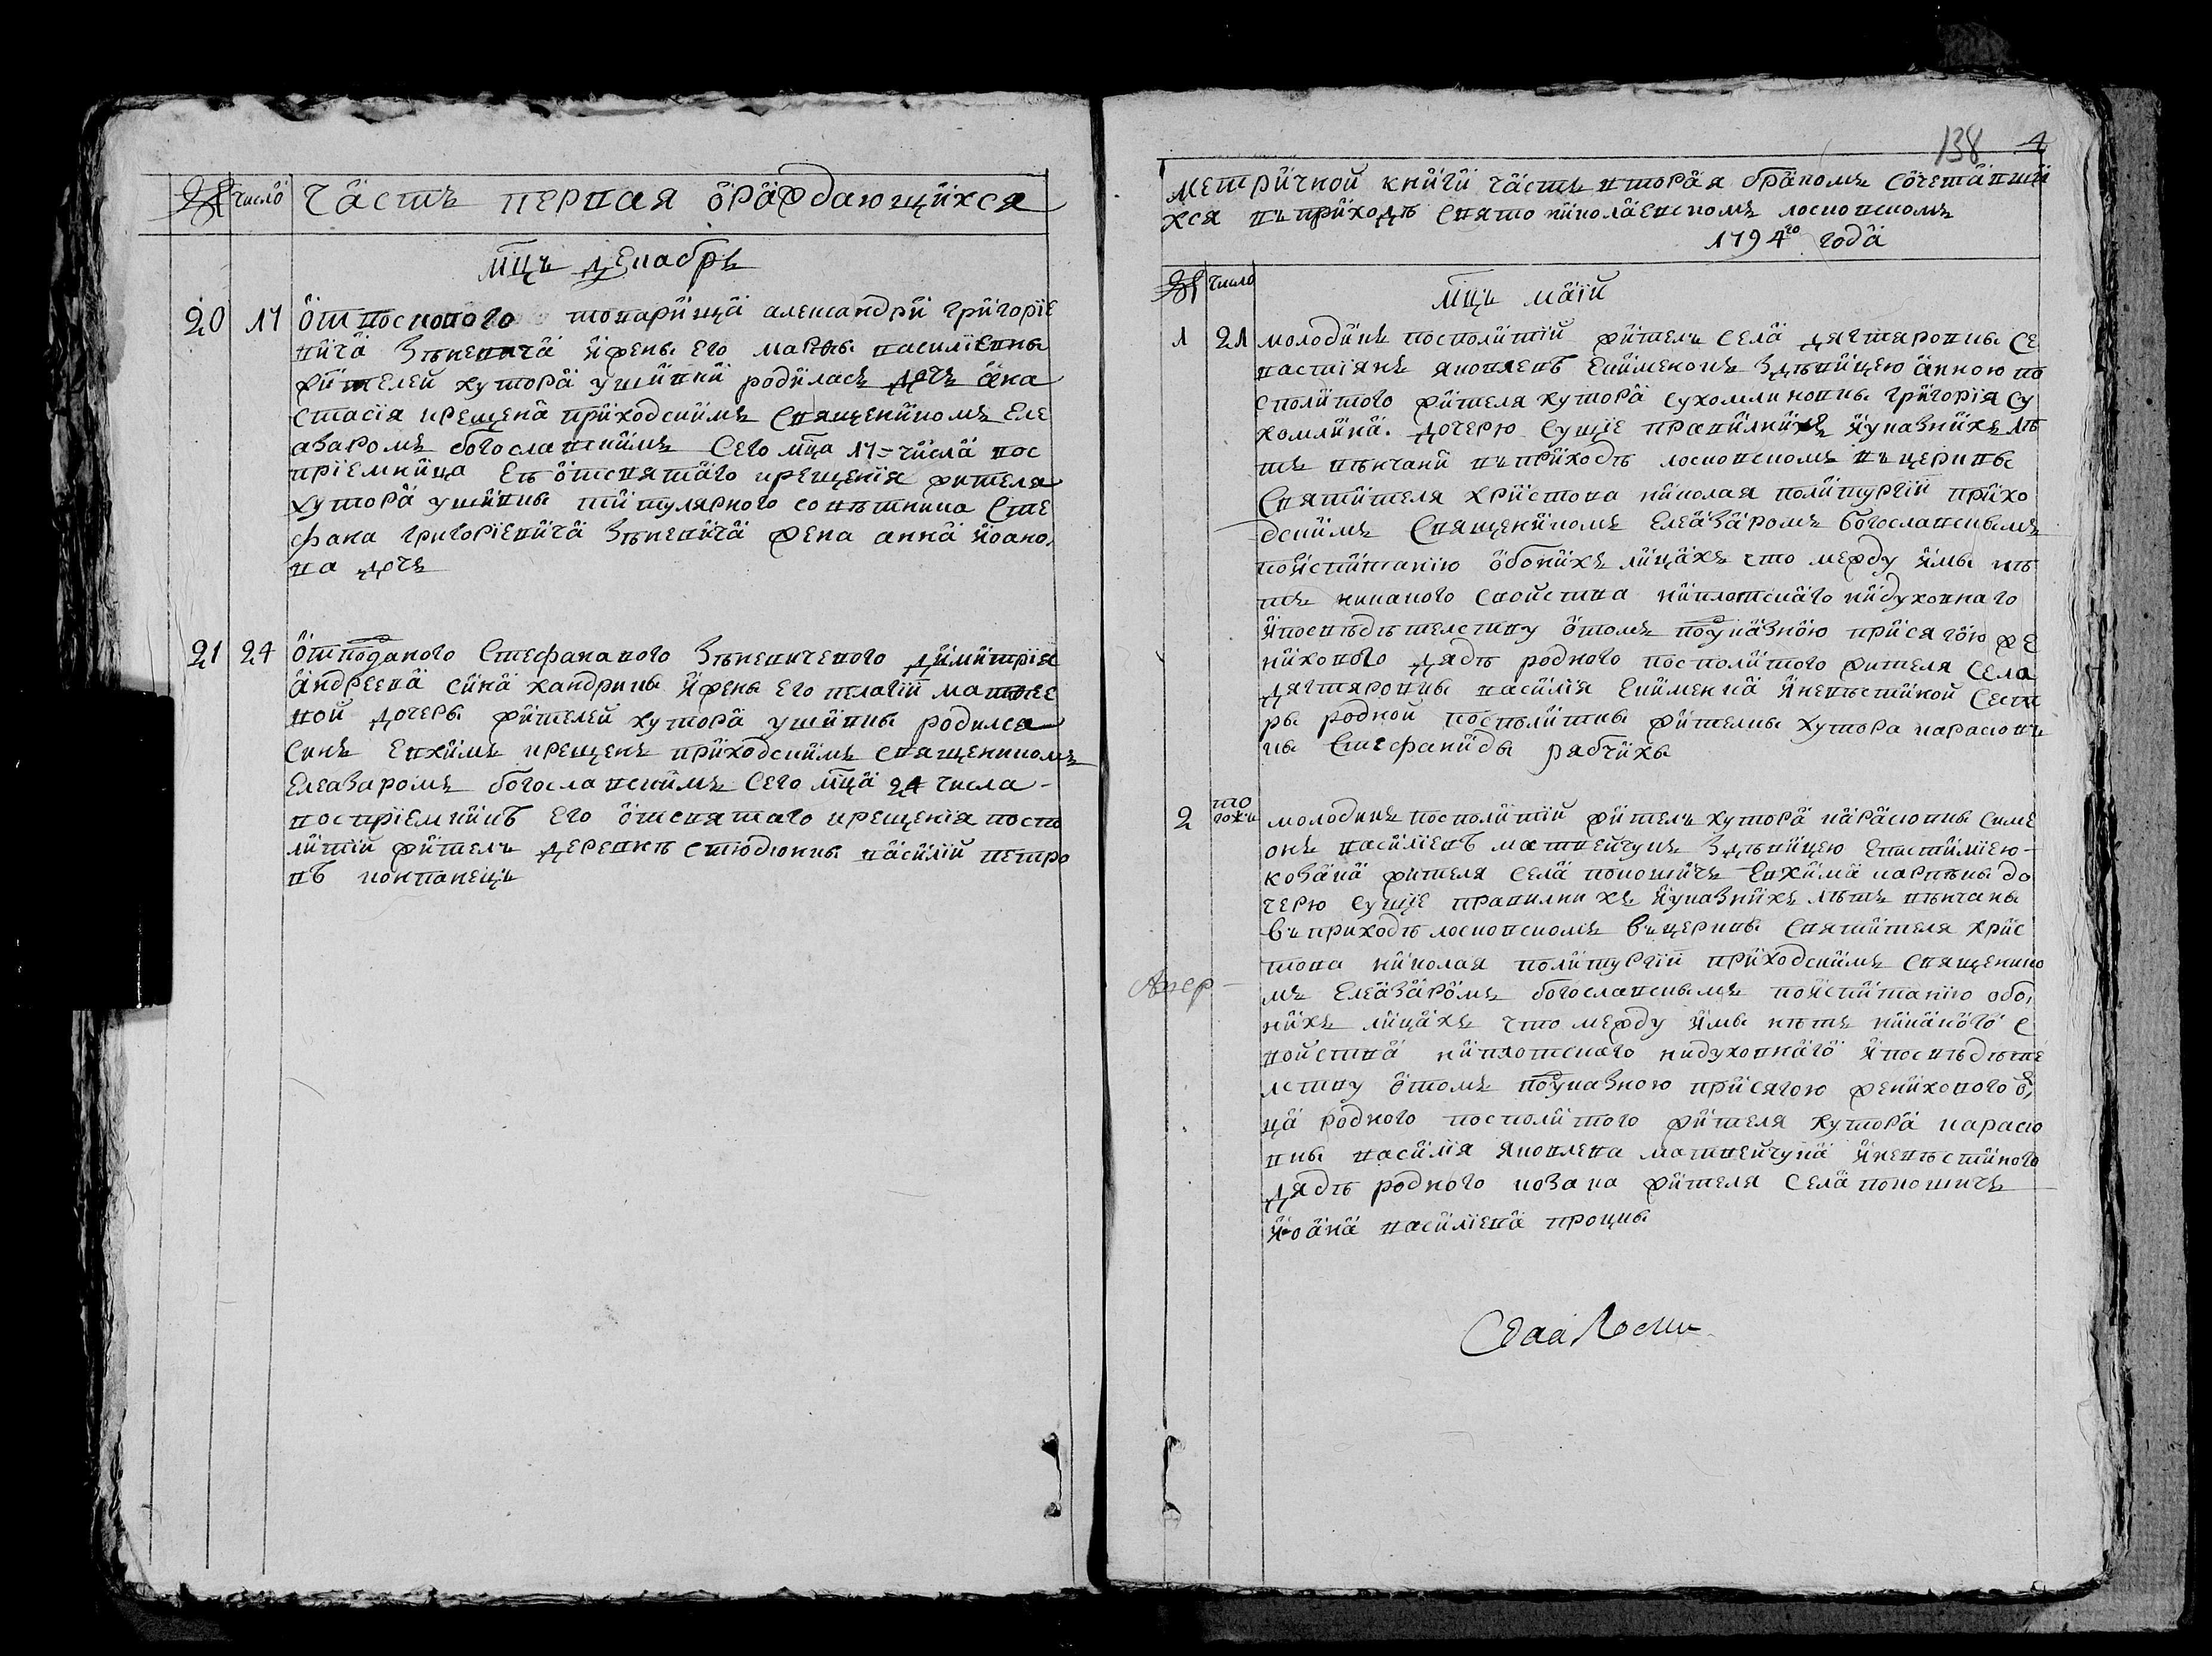 № число Часть первая ораждающихся
мцъ декабрь
20 17 От войскового товарища александри григорие
вича Зѣневича и жены его марфы василиевны
жителей хутора ушивки родилась дочь ана
стасия крещена приходскимъ священикомъ Еле
азаромъ богославскимъ Сего мца 17= числа вос
приемница Еѣ отсвятаго крещения жителя
хутора ушивки титулярного совѣтника Сте
фана григориевича Зѣневича жена анна иоано,
ва дочь
21 24 Отподаного Стефанавого Зѣневичевого димитрия
андреева сина хандрики и жены его пелагии матвее
вой дочеры жителей хутора ушивки родился
синъ Евхимъ крещенъ приходскимъ священикомъ
Елеазаромъ богославскимъ Сего мца 24 числа -
восприемникъ Его отсвятаго крещения поспо
литий житель деревнѣ стюдюнки василий петро
въ контанецъ
138 4
Метричной книги часть вторая бракомъ сочетавши
хся въприходѣ свято николаевскомъ лосковскомъ
1794го года
№ число
мцъ маий
1 21 молодикъ посполитий житель села дягтяровки се
вастиянъ яковлевъ Ехименокъ Здѣвицею анною по
сполитого жителя хутора сухомлиновки григория су
хомлина. дочерю сущие правилнихъ иуказнихъ лѣ
тъ вѣнчани въприходѣ лосковскомъ въцеркви
Святителя христова николая политургии прихо
дскимъ Священикомъ Елеазаромъ богославскимъ
поиститанию обоихъ лицахъ что между имы нѣ
тъ никакого свойства ниплотскаго нидуховнаго
ипосвѣдѣтелству отомъ подуказною присягою же
нихового дядѣ родного посполитого жителя села
дягтяровки василия Ехименка иневѣстиной сест
ры родной посполитки жителки хутора карасювъ
ки Стефаниды рябчихи
2 того жъ молодикъ посполитий житель хутора карасювки симе
онъ василиевъ матвейчукъ Здѣвицею Евстимиею-
козака жителя села понопичъ Евхима карпеки до
черю сущие правилнихъ иуказнихъ лѣтъ вѣнчаны
въприходѣ лосковскомъ въцеркви Святителя хрис
това николая политургии приходскимъ священико
мъ Елеазаромъ богославскимъ поиститанию обо,
ихъ лицахъ что между имы нѣтъ никакого с
войства ниплотскаго нидуховнаго ипосвѣдѣте
лству отомъ подуказною присягою женихового о,
ца родного посполитого жителя хутора карасю
вки василия яковлева матвейчука иневѣстиного
дядѣ родного козака жителя села понопичъ
иоана василиева процки